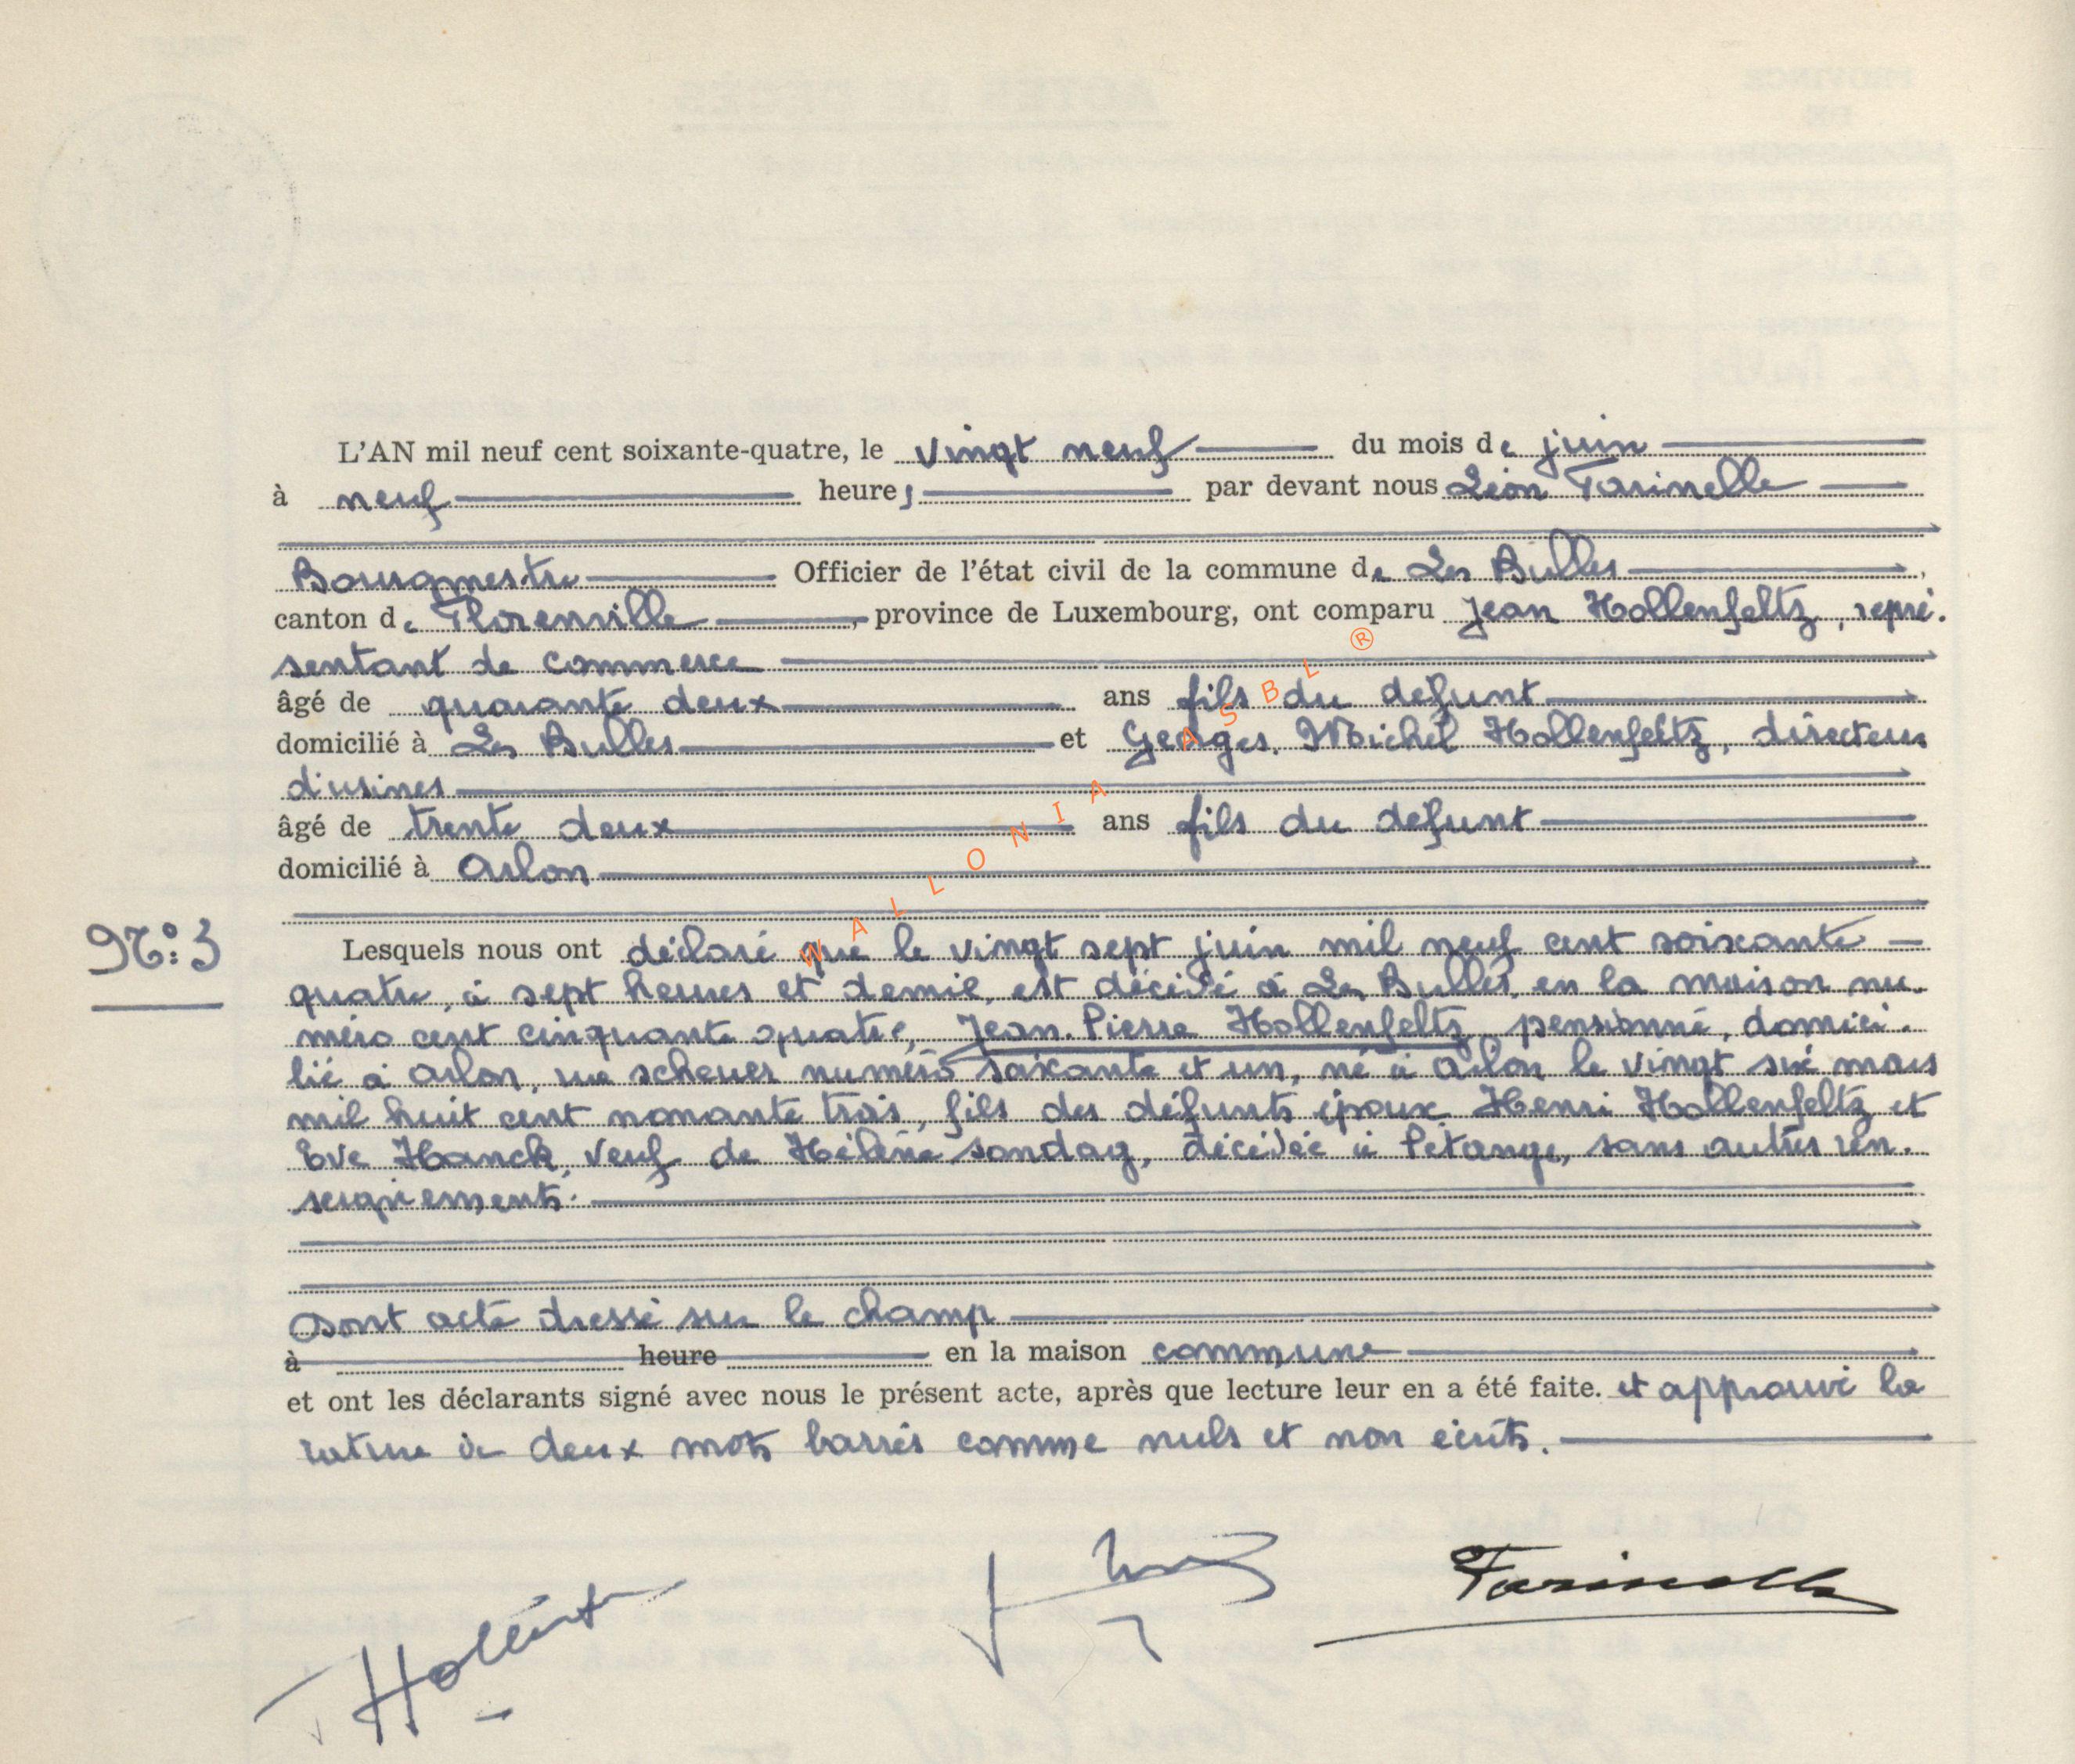 L'AN mil neuf cent soixante-quatre, le vingt neuf du mois de juin
à neuf heures, par devant nous Léon Farinelle
Bourgmestre Officier de l'état civil de la commune de Les Bulles,
canton de Florenville, province de Luxembourg, ont comparu Jean Hollenfeltz, repré-
sentant de commerce
âgé de quarante deux ans fils du défunt
domicilié à Les Bulles et Georges. Michel Hollenfeltz, directeur
d'usines
âgé de trente deux ans fils du défunt
domicilié à Arlon
N°: 3
Lesquels nous ont déclaré que le vingt sept juin mil neuf cent soixante-
quatre, à sept heures et demie, est décédé à Les Bulles, en la maison nu-
méro cent cinquante quatre, Jean. Pierre Hollenfeltz, pensionné, domici-
lié à Arlon, rue scheuer numéro soixante et un, né à Arlon le vingt six mars
mil huit cent nonante trois, fils des défunts époux Henri Hollenfeltz et
Eve Hanck, veuf de Hélène Sondag, décédée à Pétange, sans autres ren-
seignements.
Dont acte dressé sur le champ
à heure en la maison commune
et ont les déclarants signé avec nous le présent acte, après que lecture leur en a été faite. et approuvé la
rature de deux mots barrés comme nuls et non écrits.
Farinelle
WALLONIA ASBL ®